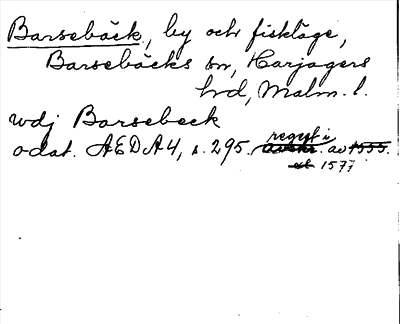 Barsebäck, by och fiskläge,
Barsebäcks sn, Harjagers
hrd, Malm. l.
wdj Barsebeck
odat. AEDA4, s. 295. regest i av
1577